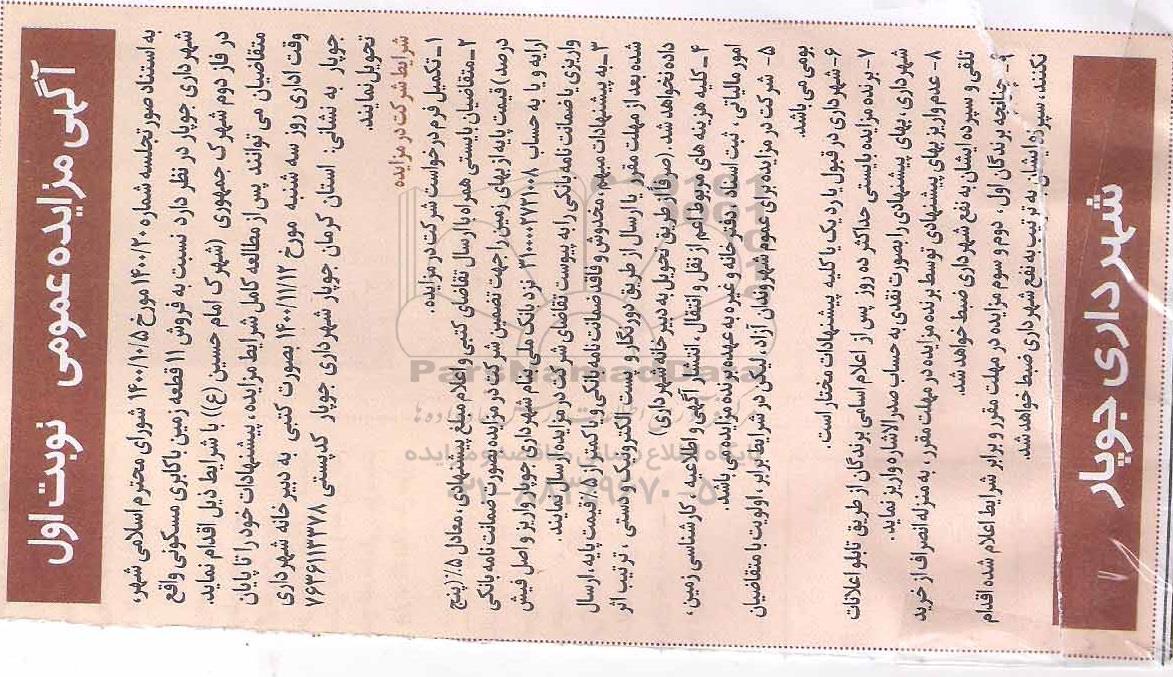 آگهی مزایده عمومی نوبت اول
به استناد صورتجلسه شماره ۱۴۰۰/۲۰ مورخ ۱۴۰۰/۱۰/۵ شورای محترم اسلامی شهر،
شهرداری جوپار در نظر دارد نسبت به فروش ۱۱ قطعه زمین با کاربری مسکونی واقع
در فاز دوم شهرک جمهوری (شهرک امام حسین (ع)) با شرایط ذیل اقدام نماید.
متقاضیان می توانند پس از مطالعه کامل شرایط مزایده، پیشنهادات خود را تا پایان
وقت اداری روز سه شنبه مورخ ۱۴۰۰/۱۱/۱۲ بصورت کتبی به دبیرخانه شهرداری
جوپار به نشانی: استان کرمان جوپار شهرداری جوپار کدپستی ۷۶۳۶۱۱۳۳۷۸
تحویل نمایند.
شرایط شرکت در مزایده
۱_تکمیل فرم درخواست شرکت در مزایده.
۲_متقاضیان بایستی همراه با ارسال تقاضای کتبی و اعلام مبلغ پیشنهادی، معادل ۵٪ (پنج
درصد) قیمت پایه از بهای زمین را جهت تضمین شرکت در مزایده بصورت ضمانت نامه بانکی
ارایه و یا به حساب ۳۱۰۰۰۰۲۷۳۱۰۰۸ نزد بانک ملی بنام شهرداری جوپار واریز و اصل فیش
واریزی یا ضمانت نامه بانکی را به پیوست تقاضای شرکت در مزایده ارسال نمایند.
۳_به پیشنهادات مبهم، مخدوش و فاقد ضمانت نامه بانکی و یا کمتر از ۵٪ قیمت پایه، ارسال
شده بعد از مهلت مقرر یا ارسال از طریق دورنگار و پست الکترونیک و دستی، ترتیب اثر
داده نخواهد شد. (صرفاً از طریق تحویل به دبیرخانه شهرداری)
۴_کلیه هزینه های مربوط اعم از نقل و انتقال، انتشار آگهی و اطلاعیه، کارشناسی زمین،
امور مالیاتی، ثبت اسناد، دفترخانه و غیره به عهده برنده مزایده می باشد.
۵- شرکت در مزایده برای عموم شهروندان آزاد، لیکن در شرایط برابر، اولویت با متقاضیان
بومی می باشد.
۶-شهرداری در قبول یا رد یک یا کلیه پیشنهادات مختار است.
۷-برنده مزایده بایستی حداکثر ده روز پس از اعلام اسامی برندگان از طریق تابلو اعلانات
شهرداری، بهای پیشنهادی را بصورت نقدی به حساب صدرالاشاره واریز نماید.
۸- عدم واریز بهای پیشنهادی توسط برنده مزایده در مهلت مقرر، به منزله انصراف از خرید
تلقی و سپرده ایشان به نفع شهرداری ضبط خواهد شد.
۹-چنانچه برندگان اول، دوم و سوم مزایده در مهلت مقرر و برابر شرایط اعلام شده اقدام
نکنند، سپرده ایشان به ترتیب به نفع شهرداری ضبط خواهد شد.
شهرداری جوپار
ParsNamadData
پایگاه اطلاع رسانی مناقصه و مزایده
۰۲۱-۸۸۳۴۹۶۷۰-۵